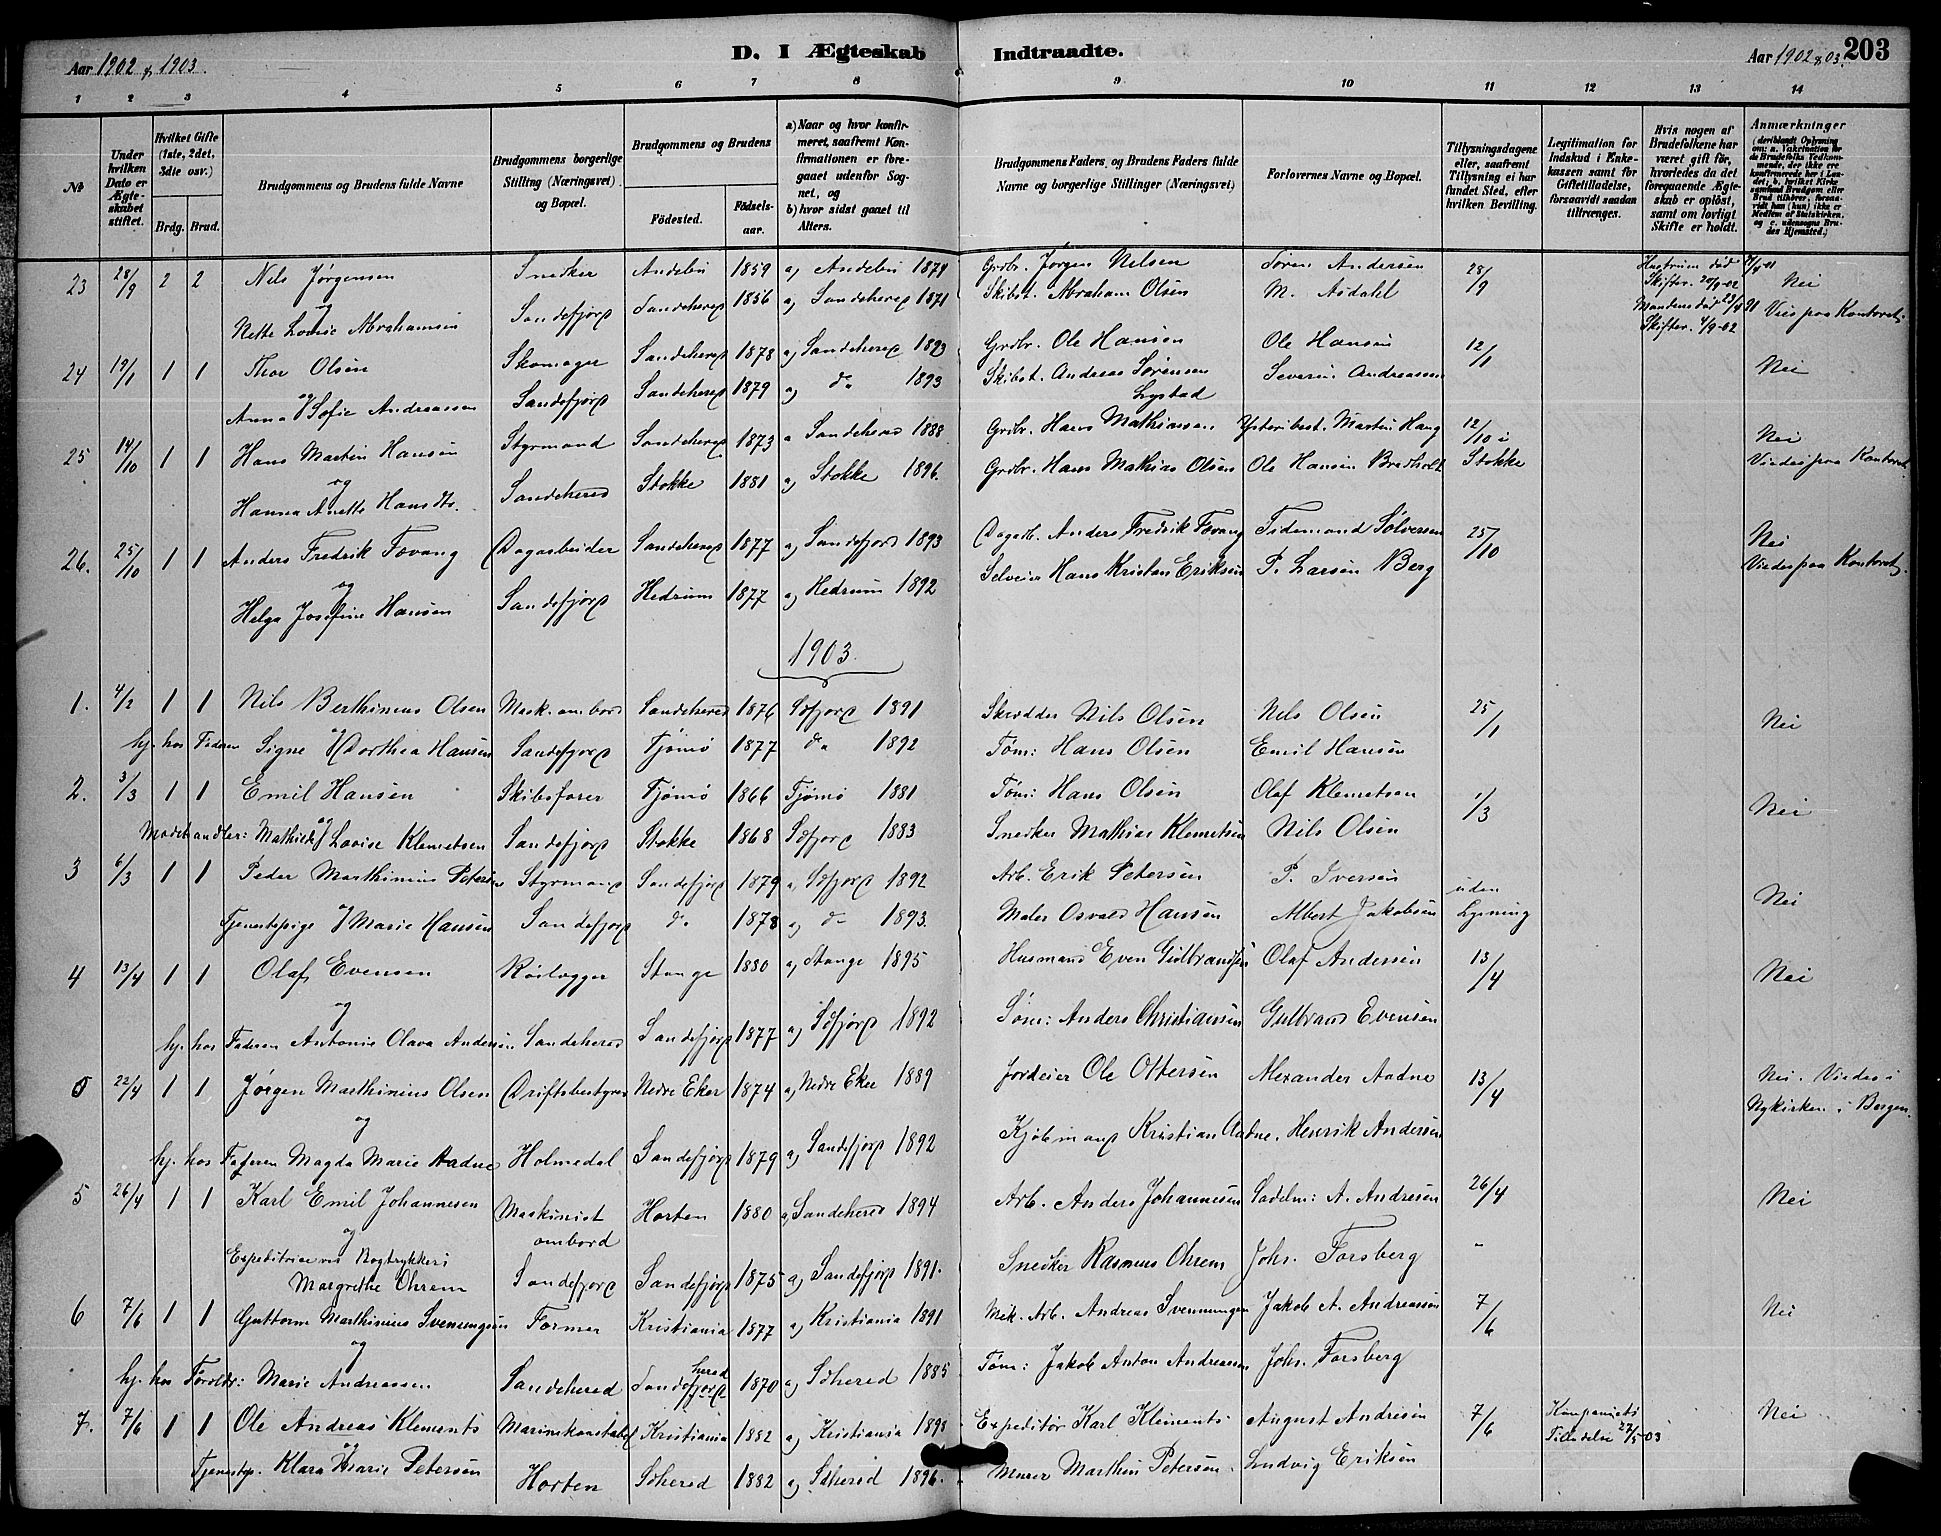 Aar 1902 & 1903.
D. I Ægteskab Indtraadte.
Aar 1902 & 03. 203
1 2 3 4 5 6 7 8 9 10 11 12 13 14
No
Under hvilken Dato er Ægteskabet stiftet.
Hvilket Gifte (1ste, 2det, 3die osv.)
Brdg. Brud.
Brudgommens og Brudens fulde Navne
Brudgommens borgerlige Stilling (Næringsvei) og Bopæl.
Brudgommens og Brudens
Födested.
Födselsaar.
a) Naar og hvor konfirmeret, saafremt Konfirmationen er foregaaet udenfor Sognet, og
b) hvor sidst gaaet til Alters.
Brudgommens Faders, og Brudens Faders fulde Navne og borgerlige Stillinger (Næringsvei)
Forlovernes Navne og Bopæl.
Tillysningsdagene eller, saafremt Tillysning ei har fundet Sted, efter hvilken Bevilling.
Legitimation for Indskud i Enkekassen samt for Giftetilladelse, forsaavidt saadan tiltrænges.
Hvis nogen af Brudefolkene har været gift før, hvorledes da det foregaaende Ægteskab er opløst, samt om lovligt Skifte er holdt.
Anmærkninger
23 28/9 2 2 Nils Jørgensen Snedker Andebu 1859 a) Andebu 1874 Grdbr. Jørgen Nilsen Søren Andersen 28/9 Hustruen död Skifter. 20/9-02 Nei
og
Nette Lovise Abrahamsen Sandefjord Sandeherred 1856 a) Sandeherred 1871 Skibst. Abraham Olsen M. Asdahl Manden död Skifter. 4/9-02 Vies paa Kontoret
24 19/1 1 1 Thor Olsen Skomager Sandeherred 1878 a) Sandeherred 1893 Grdbr. Ole Hansen Ole Hansen 12/1 Nei
og
Anna Sofie Andreassen Sandefjord Sandeherred 1879 a) do 1893 Skibst. Andreas Sørensen Lystad Severin Andreassen
25 14/10 1 1 Hans Martin Hansen Styrmand Sandeherred 1873 a Sandeherred 1888 Grdbr. Hans Mathiassen Martin Haug 12/10 i Stokke Nei
og
Hanna Anette Hansdtr. Sandeherred Stokke 1881 a) Stokke 1896. Grdbr. Hans Mathias Olsen Ole Hansen Bredholt Viedes paa Kontoret
26. 25/10 1 1 Anders Fredrik Fovang Dagarbeider Sandeherred 1877 a) Sandefjord 1893 Dagarb. Anders Fredrik Fovang Tidemand Sölversen 25/10 Nei
og
Helga Josefine Hansen Sandefjord Hedrum 1877 a) Hedrum 1892 Selveier Hans Kristian Eriksen P. Larsen Berg Viedes paa Kontoret.
1903.
1. 4/2 1 1 Nils Berthinius Olsen Mask. ombord Sandeherred 1876 Sdfjord 1891 Skrædder Nils Olsen Nils Olsen 25/1 Nei
og
hj. hos Faderen Signe Dorthea Hansen Sandefjord Tjømø 1877 do 1892 Tøm: Hans Olsen Emil Hansen
2. 3/3 1 1 Emil Hansen Skibsfører Tjømø 1866 Tjømø 1881 Tøm: Hans Olsen Olaf Klemetsen 1/3 Nei
og
Modehandler: Mathilde Lovise Klemetsen Sandefjord Stokke 1868 Sdfjord 1883 Snedker Mathias Klemetsen Nils Olsen
3 6/3 1 1 Peder Marthinius Petersen Styrmand Sandefjord 1879 a) Sdfjord 1892 Arb. Erik Petersen P. Iversen uden Lysning Nei
og
Tjenestepige Marie Hansen Sandefjord do 1878 a) do 1893. Maler Osvald Hansen Albert Jakobsen
4 13/4 1 1 Olaf Evensen Rørlægger Stange 1880 a) Stange 1895 Husmand Even Gulbrandsen Olaf Andersen 13/4 Nei
og
hj. hos Faderen Antonie Olava Andersen. Sandeherred Sandefjord 1877 a) Sdfjord 1892 Tøm: Anders Christiansen Gulbrand Evensen
5 22/4 1 1 Jørgen Marthinius Olsen Driftsbestyrer Nedre Eker 1874 a) Nedre Eker 1889 Jordeier Ole Ottersen Alexander Aadne 13/4 Nei. Viedes i
og
hj. hos Faderen Magda Marie Aadne Holmedal Sandefjord 1879 a) Sandefjord 1892 Kjøbmand Kristian Aadne. Henrik Andersen Nykirken i Bergen.
5 26/4 1 1 Karl Emil Johannesen Maskinist ombord Horten 1880 a) Sandeherred 1894 Arb. Anders Johannesen Sadelm: A. Andresen 26/4 Nei
og
Expeditrice ved Bogtrykkeri
Margrethe Ohrem Sandefjord Sandefjord 1875 a) Sandefjord 1891. Snedker Rasmus Ohrem Johs. Forsberg "
6 7/6 1 1 Guttorm Marthinius Svenningsen Former Kristiania 1877 a) Kristiania 1891 Mek. Arb. Andreas Svenningsen Jakob A. Andreassen 7/6 Nei
og
hj. hos Forældr: Marie Andreassen Sandeherred Sandefjord herred 1870 a) Sdherred 1885 Tøm: Jakob Anton Andreassen Johs. Forsberg
7. 7/6 1 1 Ole Andreas Klements Marinekonstabel Kristiania 1882 a) Kristiania 1898 Expeditør Karl Klements August Andresen 7/6 Kompaniets Tilladelse 27/5-03 Nei
og
Tjenestep. Klara Marie Petersen Horten Sdherred 1882 a) Sdherred 1896. Murer Marthin Petersen. Ludvig Eriksen